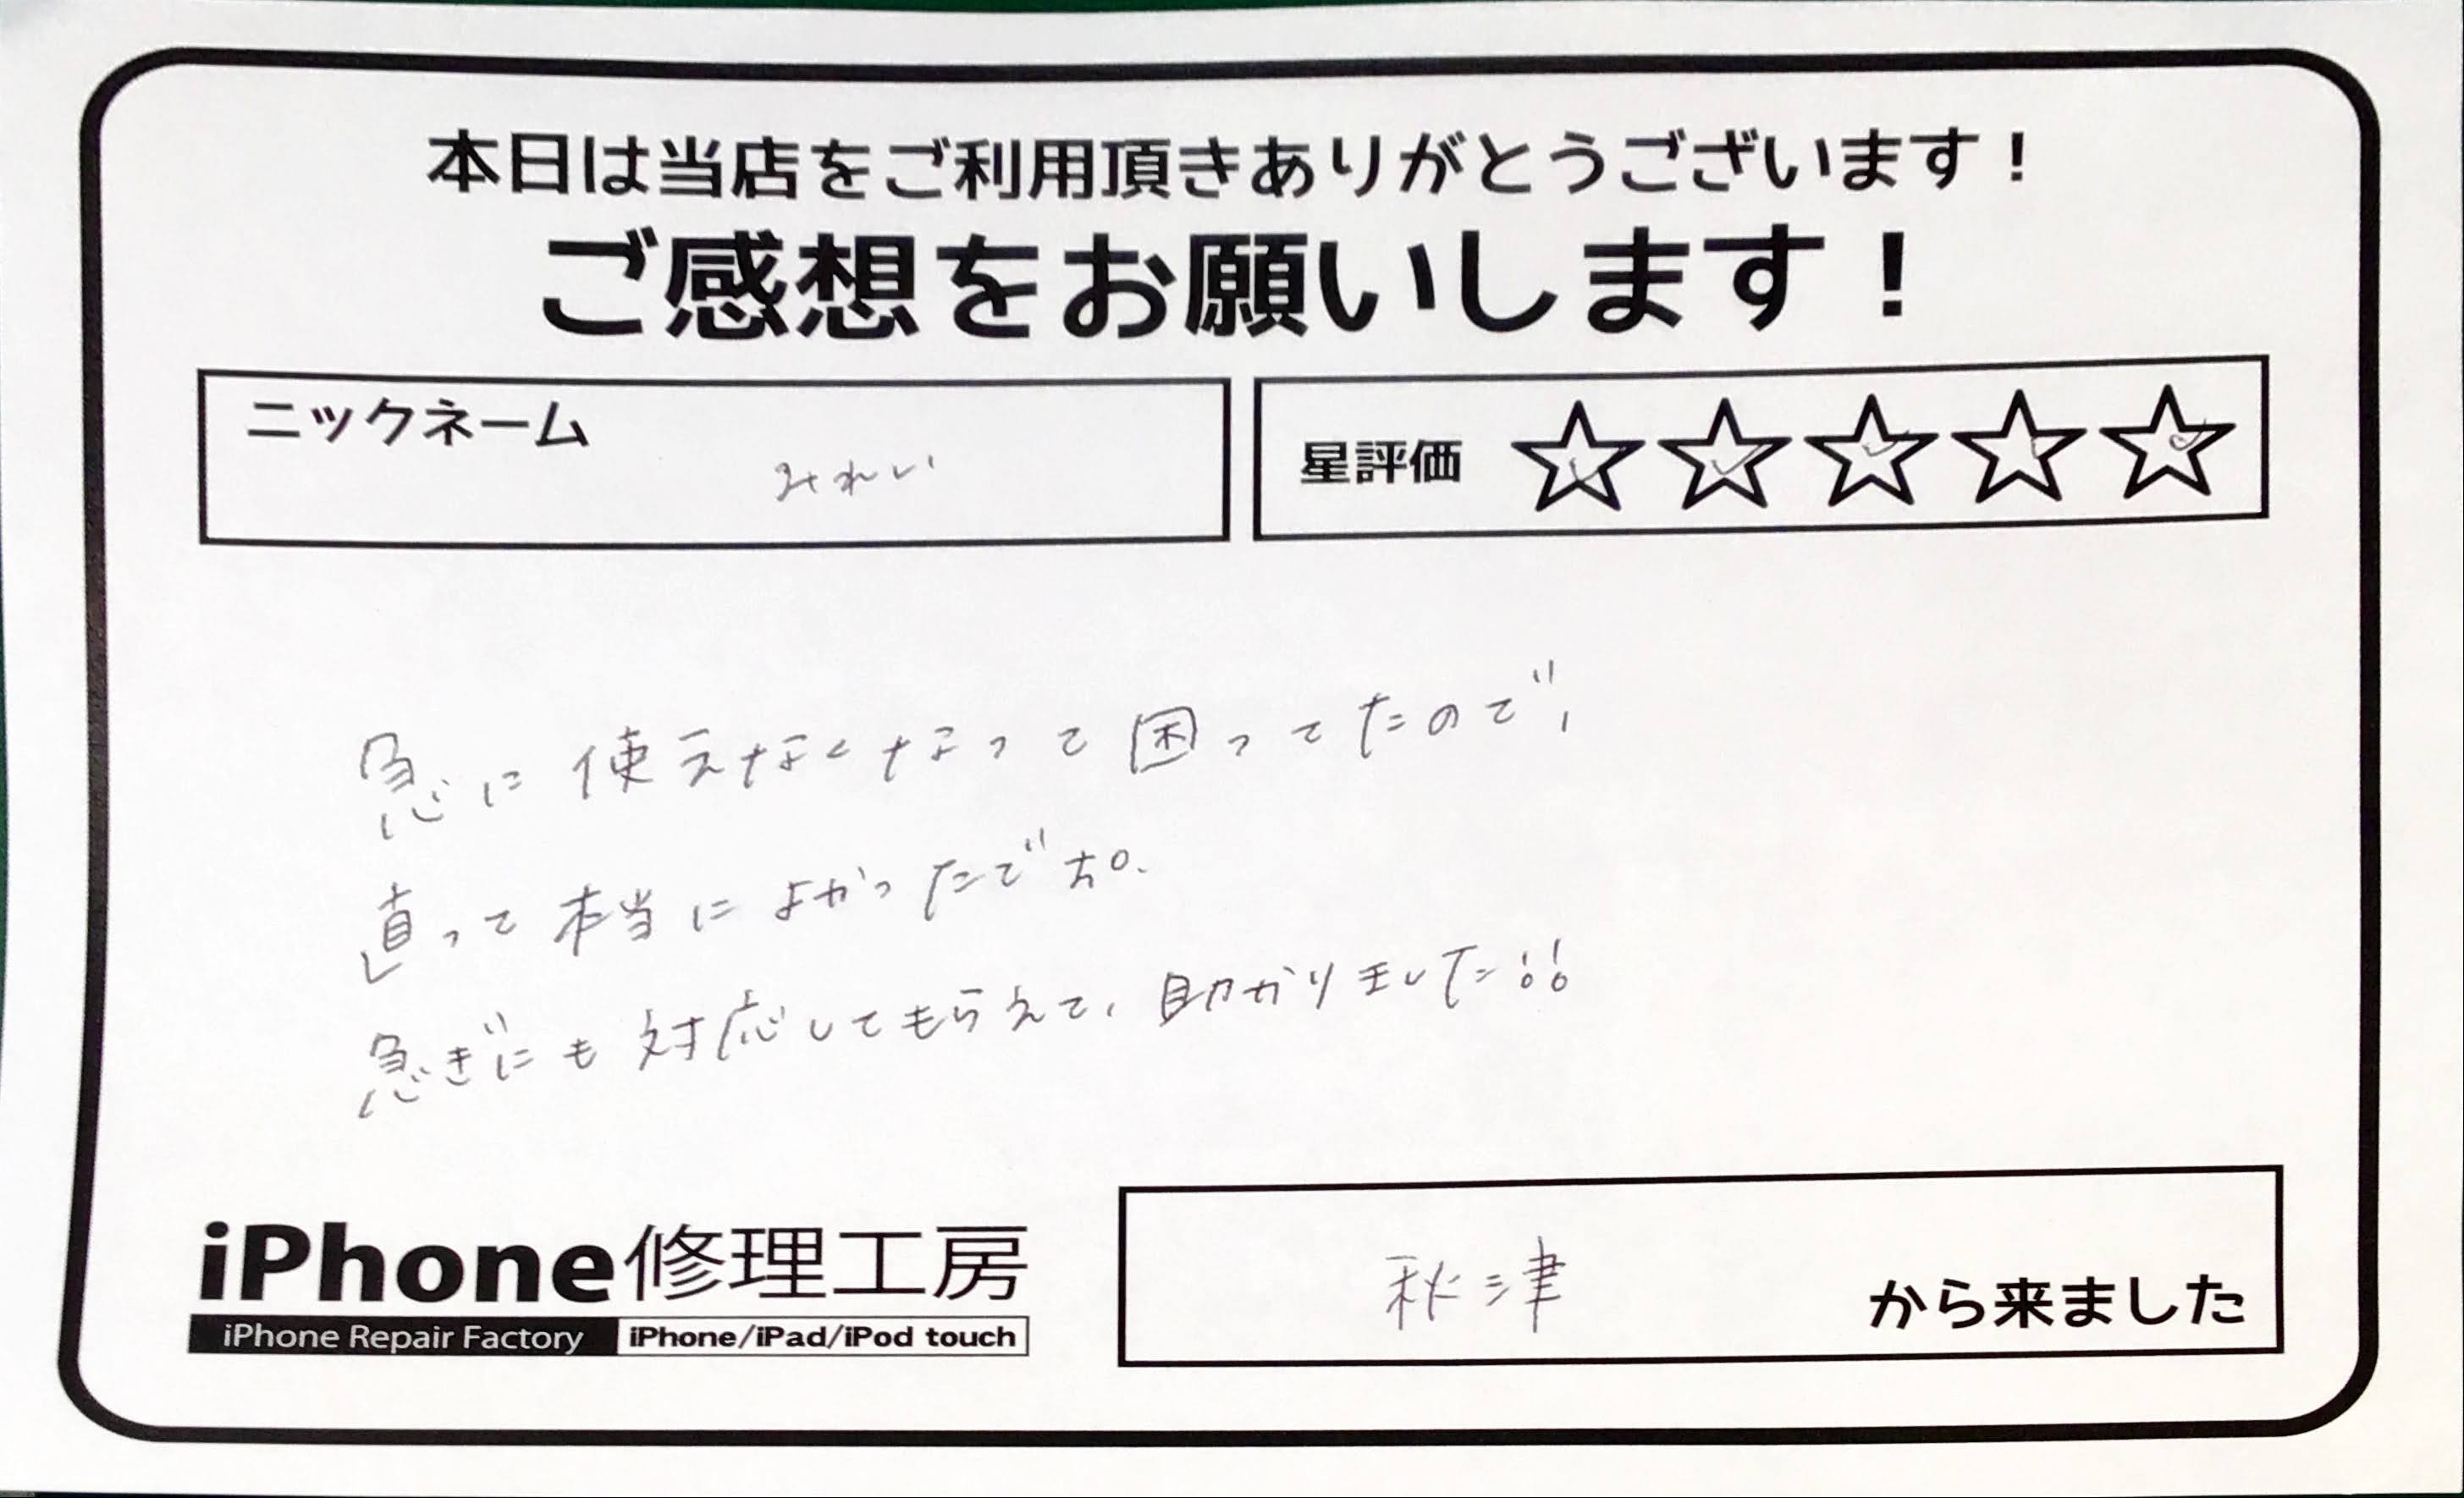 本日は当店をご利用頂きありがとうございます！
ご感想をお願いします！
ニックネーム
みれい
星評価 ☆☆☆☆☆
急に使えなくなって困ってたので、
直って本当によかったです。
急ぎにも対応してもらえて、助かりました!!
iPhone修理工房
iPhone Repair Factory iPhone/iPad/iPod touch
秋津 から来ました